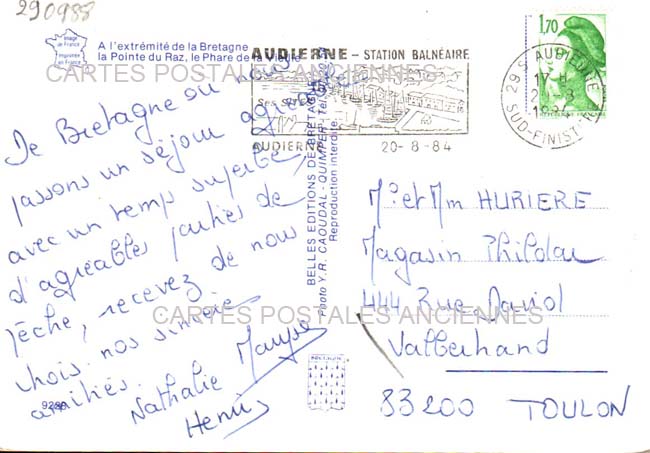 290988
Image de France
Imprimée en France
A l'extrémité de la Bretagne
la Pointe du Raz, le Phare de la Vieille
CARTES POSTALES ANCIENNES
AUDIERNE - STATION BALNÉAIRE
AUDIERNE 20-8-84
1,70
29 S AUDIERNE
17 H
SUD-FINIST
De Bretagne ou nous
passons un séjour agréable
avec un temps superbe,
d'agréables parties de
pêche, recevez de nous
trois nos sincères
amitiés.
Nathalie Maryse
Henri
9280
BELLES EDITIONS DE BRETAGNE
Photo Y.R. CAOUDAL - QUIMPER - Tel.
Reproduction interdite.
BRETAGNE
Mr et Mm HURIERE
Magasin Phildar
444 Rue David
Valbertrand
83200 TOULON
CARTES POSTALES ANCIENNES